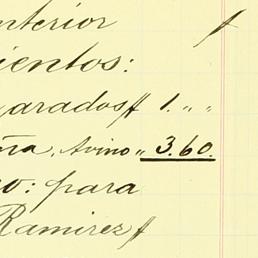 nterior $
ientos:
arados $ 1. " "
ña, Avino " 3.60.
o: para
Ramirez $